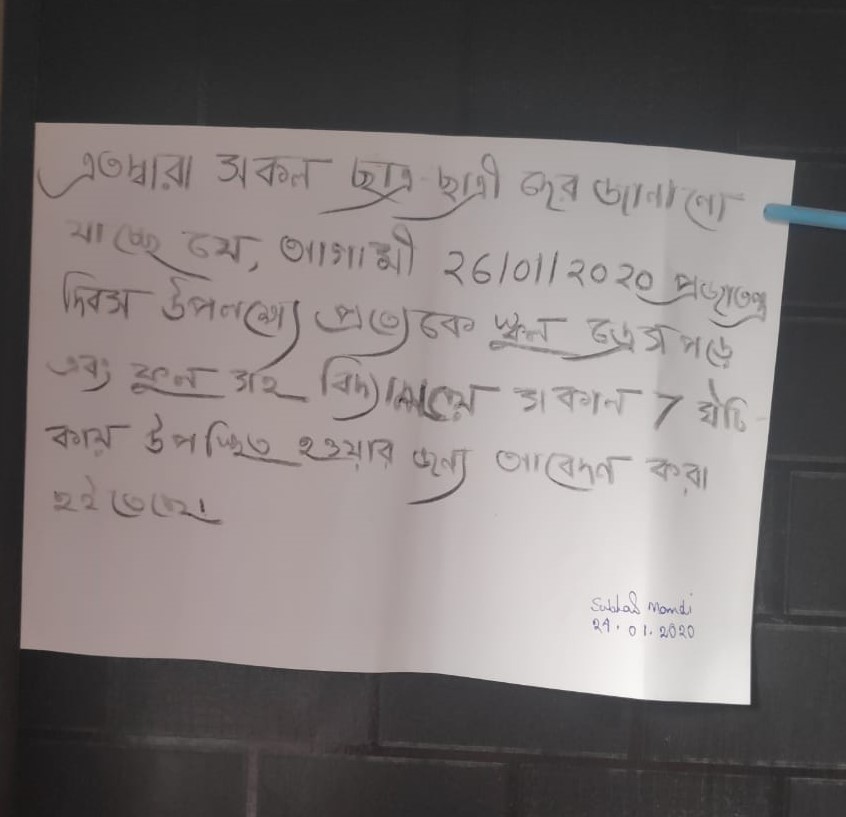 এতদ্বারা সকল ছাত্র-ছাত্রী দের জানানো
যাচ্ছে যে, আগামী 26/01/2020 প্রজাতন্ত্র
দিবস উপলক্ষ্যে প্রত্যেকে স্কুল ড্রেস পড়ে
এবং ফুল সহ বিদ্যালয়ে সকাল 7 ঘটি-
কায় উপস্থিত হওয়ার জন্য আবেদন করা
হইতেছে।
Subhas Mandi
24.01.2020